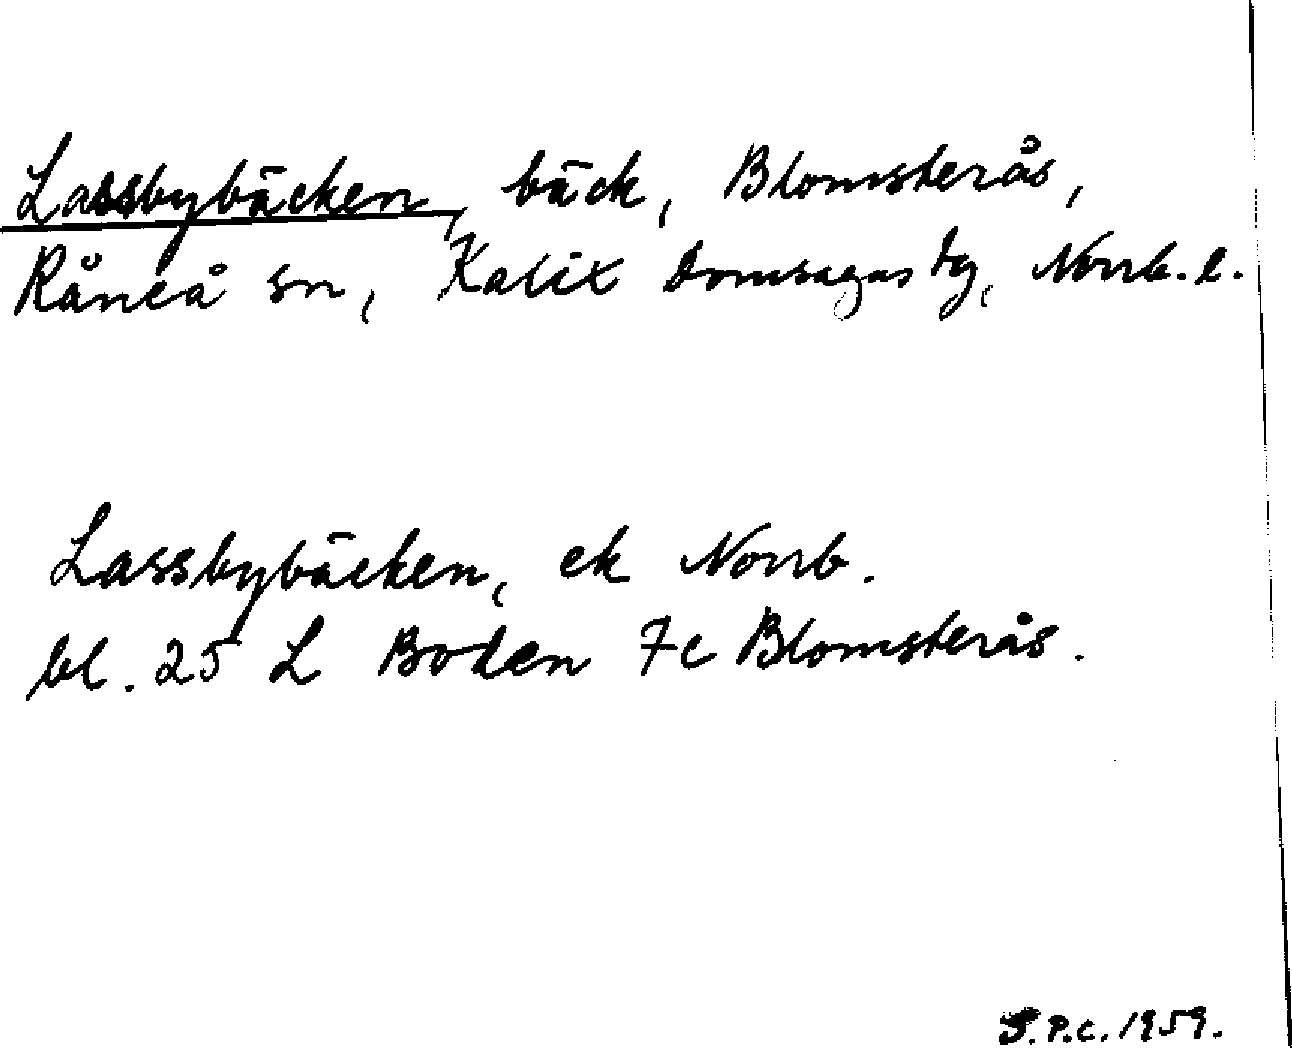 Lassbybäcken, bäck, Blomsterås,
Råneå sn, Kalix domsagas tg, Norrb. l.
Lassbybäcken, ek Norrb.
bl. 25 L Boden 7c Blomsterås.
S.P.C. 1959.